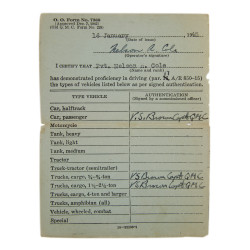 O. O. Form No. 7360
18 January, 1945
(Date of issue)
Nelson A. Cole
(Operator's signature)
I CERTIFY THAT Pvt. Nelson A. Cole
(Name and rank)
has demonstrated proficiency in driving (par. A/R 850-15)
the types of vehicles listed below as per signed authentication.
TYPE VEHICLE
AUTHENTICATION
(Signed by a commissioned officer)
Car, halftrack
Car, passenger Brown Capt QMC
Motorcycle
Tank, heavy
Tank, light
Tank, medium
Tractor
Truck-tractor (semitrailer)
Trucks, cargo, ¼-¾-ton Brown Capt QMC
Trucks, cargo, 1½-2½-ton Brown Capt QMC
Trucks, cargo, 4-ton and larger
Trucks, amphibian (all)
Vehicle, wheeled, combat
Special